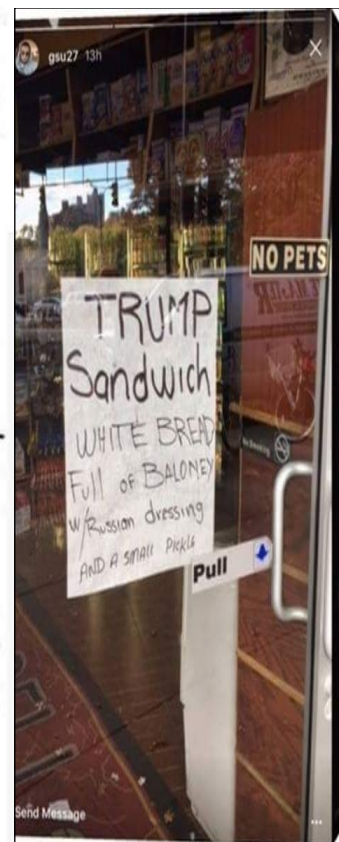 gsu27 13h
NO PETS
TRUMP
Sandwich
WHITE BREAD
Full of BALONEY
w/Russian dressing
AND A SMALL PICKLE
No Smoking
Pull
Send Message